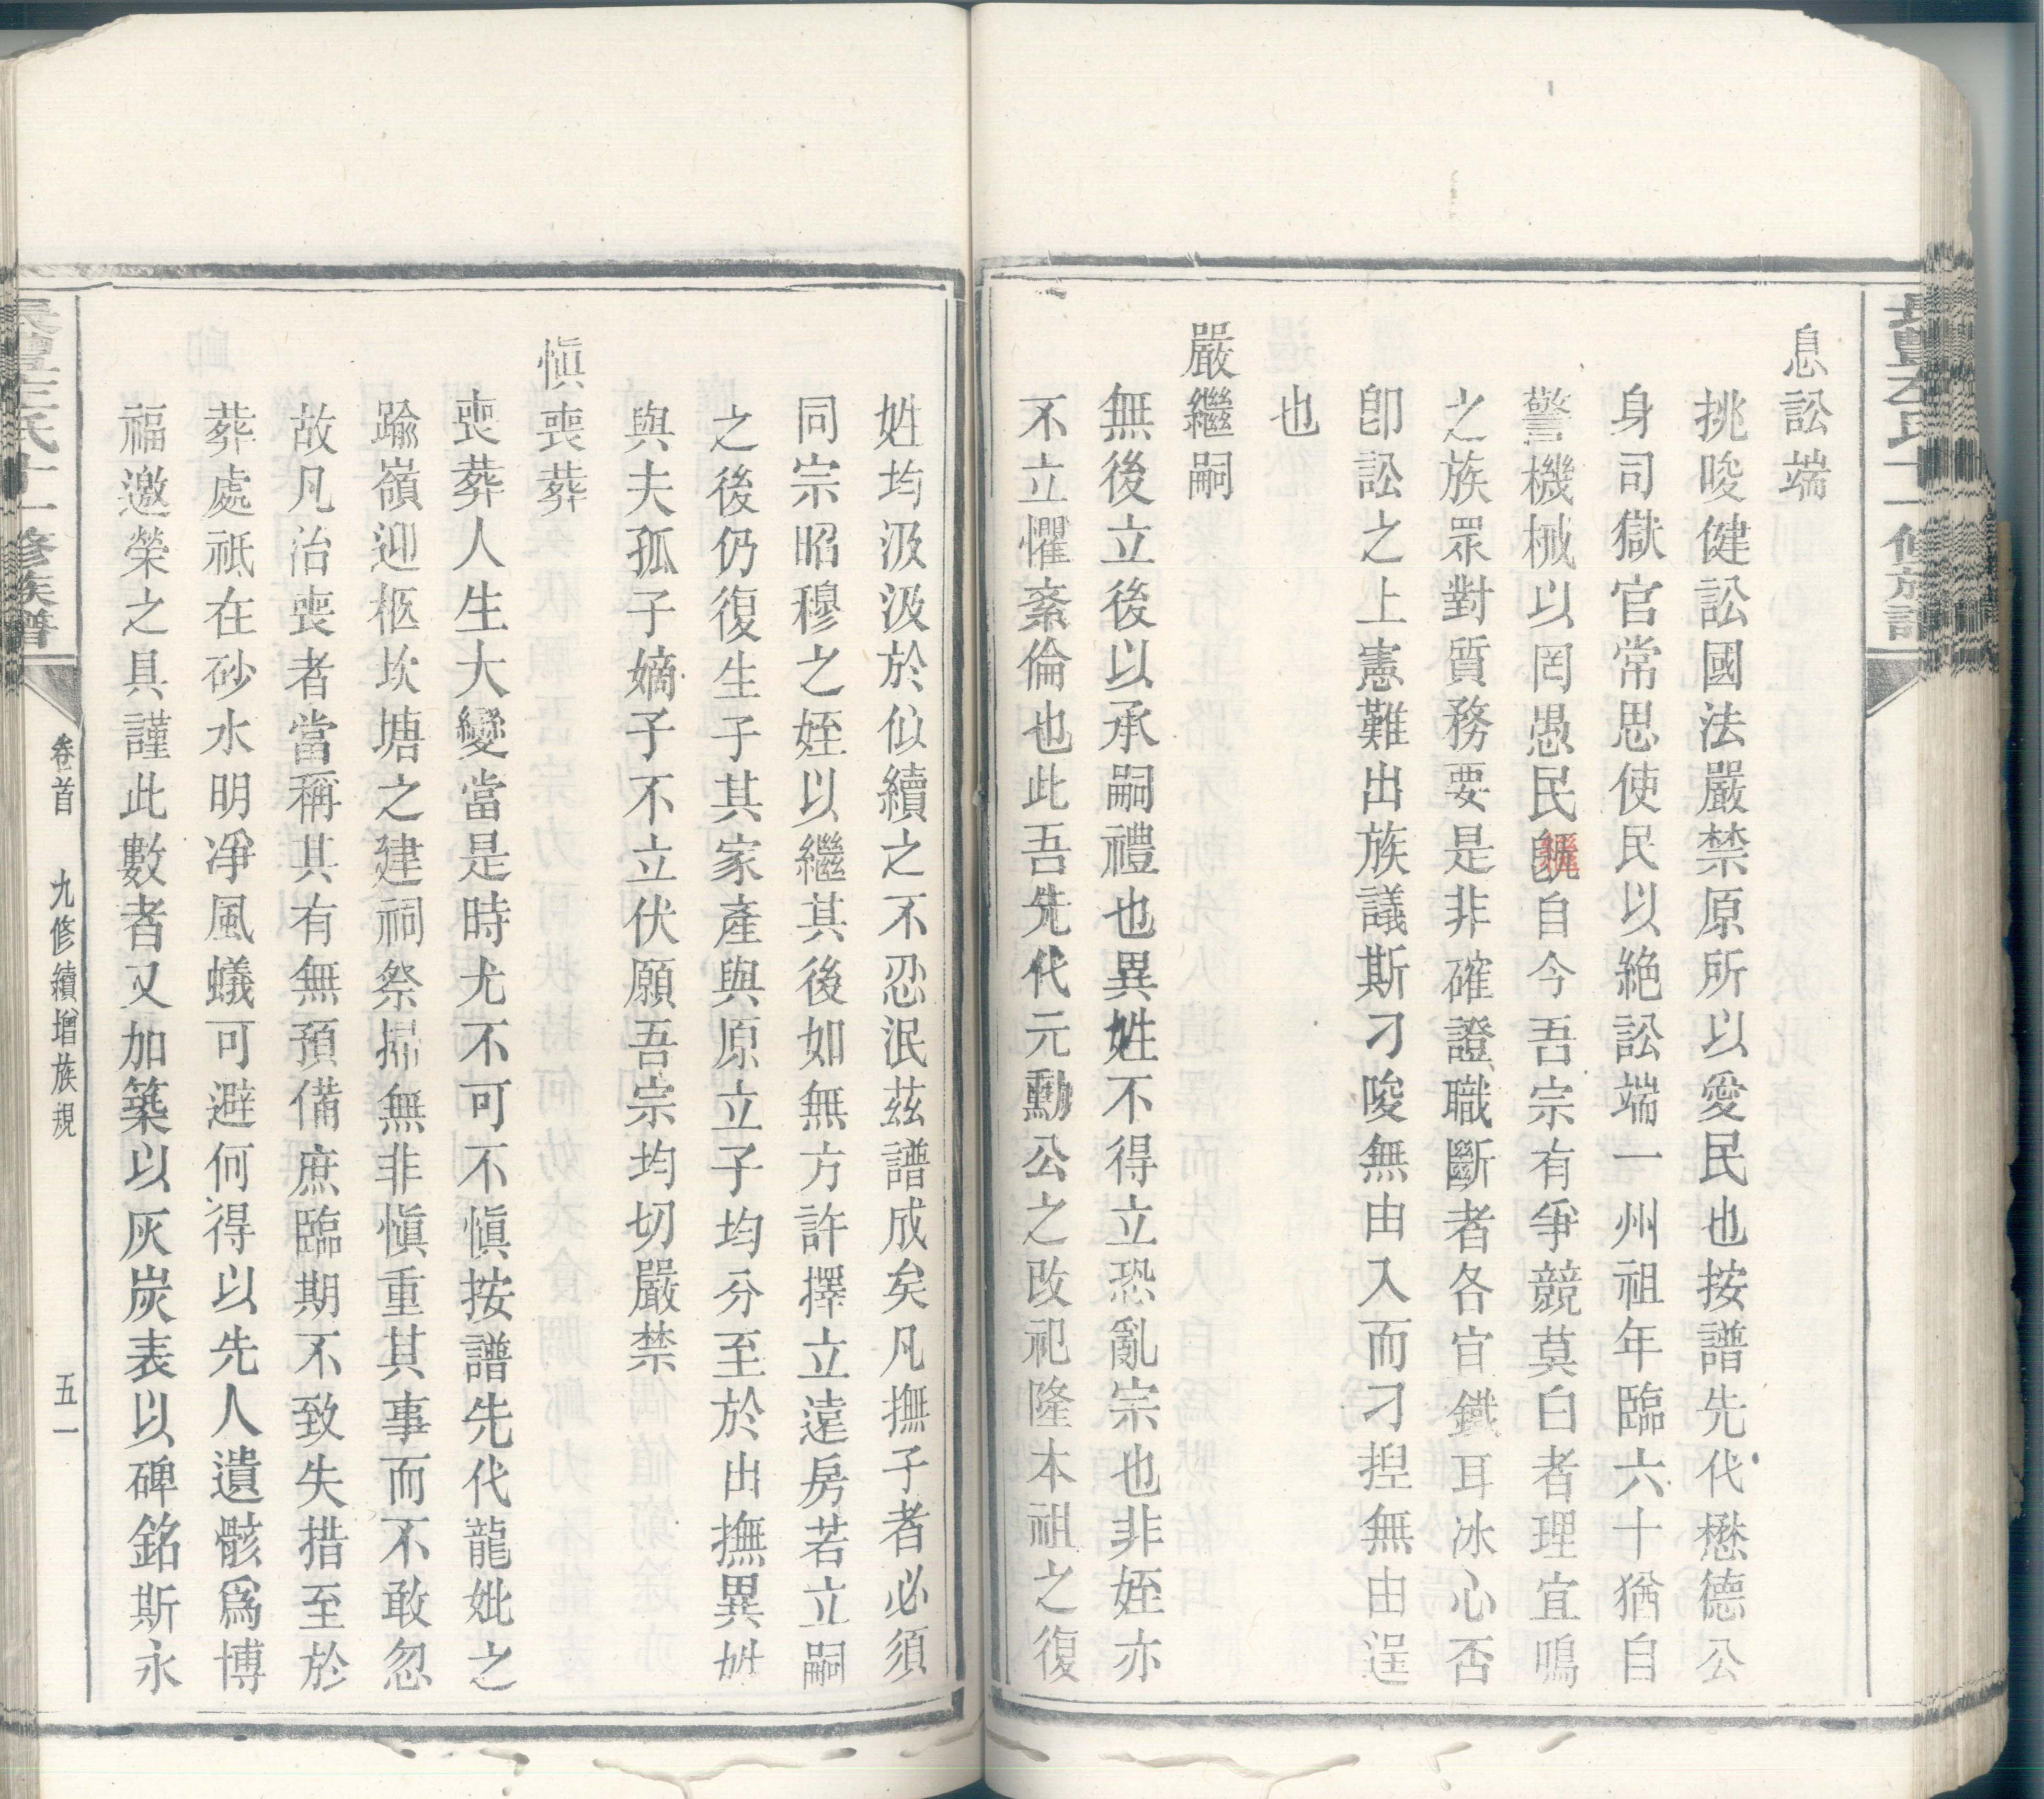 息訟端
挑唆健訟國法嚴禁原所以愛民也按譜先代懋德公
身司獄官常思使民以絶訟端一州祖年臨六十猶自
警機械以罔愚民繼自今吾宗有爭競莫白者理宜鳴
之族眾對質務要是非確證職斷者各宜鐵耳冰心否
卽訟之上憲難出族議斯刁唆無由入而刁揑無由逞
也
嚴繼嗣
無後立後以承嗣禮也異姓不得立恐亂宗也非姪亦
不立懼紊倫也此吾先代元勳公之改祀隆本祖之復
姓均汲汲於似續之不忍泯茲譜成矣凡撫子者必須
同宗昭穆之姪以繼其後如無方許擇立遠房若立嗣
之後仍復生子其家產與原立子均分至於出撫異姓
與夫孤子嫡子不立伏願吾宗均切嚴禁
愼喪葬
喪葬人生大變當是時尤不可不愼按譜先代龍妣之
踰嶺迎柩坎塘之建祠祭掃無非愼重其事而不敢忽
故凡治喪者當稱其有無預備庶臨期不致失措至於
葬處祇在砂水明凈風蟻可避何得以先人遺骸爲博
福邀榮之具謹此數者又加築以灰炭表以碑銘斯永
卷首 九修續增族規 五一